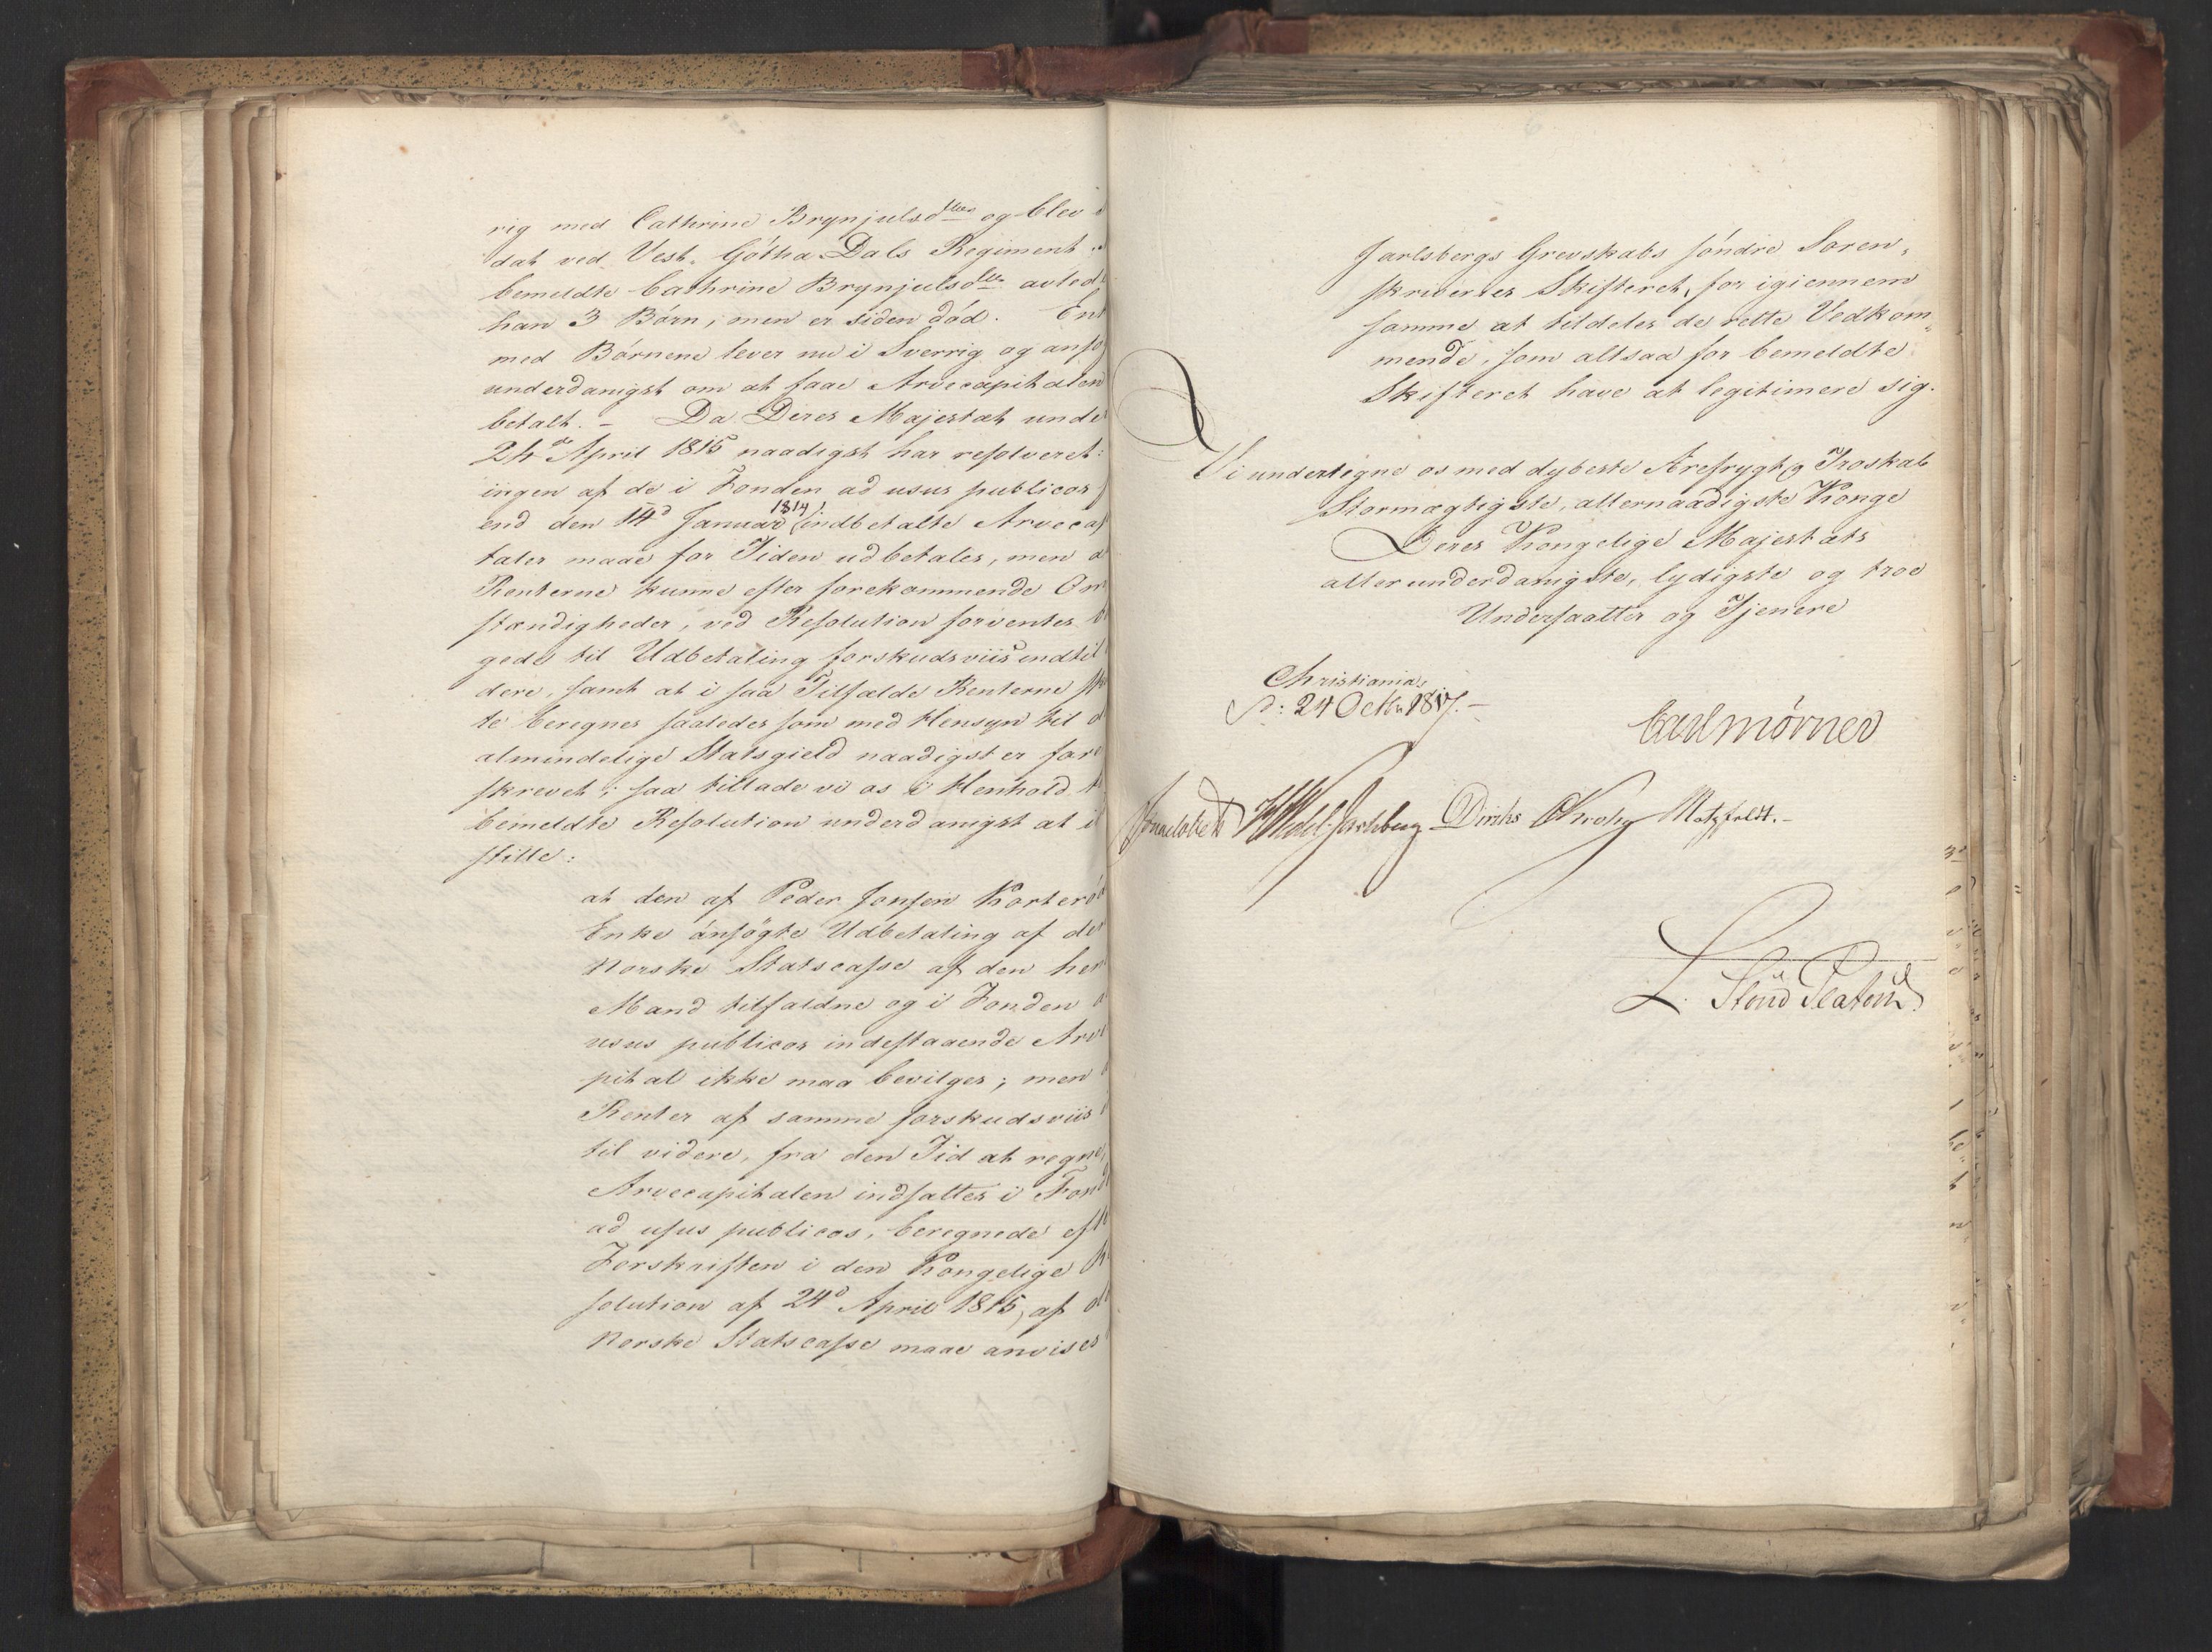 rig med Cathrine Brynjulsdtter og blev
dat ved Vest-Götha-Dals Regiment
bemeldte Cathrine Brynjulsdtr avled
han 3 Börn, men er siden död. En
med Börnene lever nu i Sverrig og anso
underdanigst om at faae Arvecapitalen
betalt. - Da Deres Majestæt unde
24de April 1815 naadigst har resolveret:
ingen af de i Fonden ad usus publicos
end den 14d Januar 1814 indbetalte Arveca
taler maae for Tiden udbetales, men
Renterne kunne efter forekommende Om
stændigheder, ved Resolution forventes
gede til Udbetaling forskudsviis indtil
dere, samt at i saa Tilfælde Renterne
te beregnes saaledes som med Hensyn til
almindelige Statsgield naadigst er fore
skrevet; saa tillade vi os i Henhold
bemeldte Resolution underdanigst at i
stille:
at den af Peder Jonsen Korteröd
Enke ansögte Udbetaling af de
Norske Statscasse af den hen
Mand tilfaldne og i Fonden
usus publicos indestaaende Arve
pital ikke maa bevilges; men
Renter af samme forskudsviis
til videre, fra den Tid at regne,
Arvecapitalen indsattes i Fond
ad usus publicos, beregnede eft
Forskriften i den Kongelige
solution af 24d April 1815, af
Norske Statscasse maae anvises
Jarlsbergs Grevskabs söndre Soren-
skriveries Skifteret, for igiennem
samme at tildeles de rette Vedkom-
mende, som altsaa for bemeldte
Skifteret have at legitimere sig.
Vi undertegne os med dybeste Ærefrygt og Troskab
Stormægtigste, allernaadigste Konge
Deres Kongelige Majestæts
allerunderdanigste, lydigste og troe
Undersaatter og Tjenere
Christiania,
d: 24 Octbr 1817.-
Carl Mörner
Sommerhielm HWedel Jarlsberg Diriks CKrohg Motzfeldt.-
L. Stoud Platou